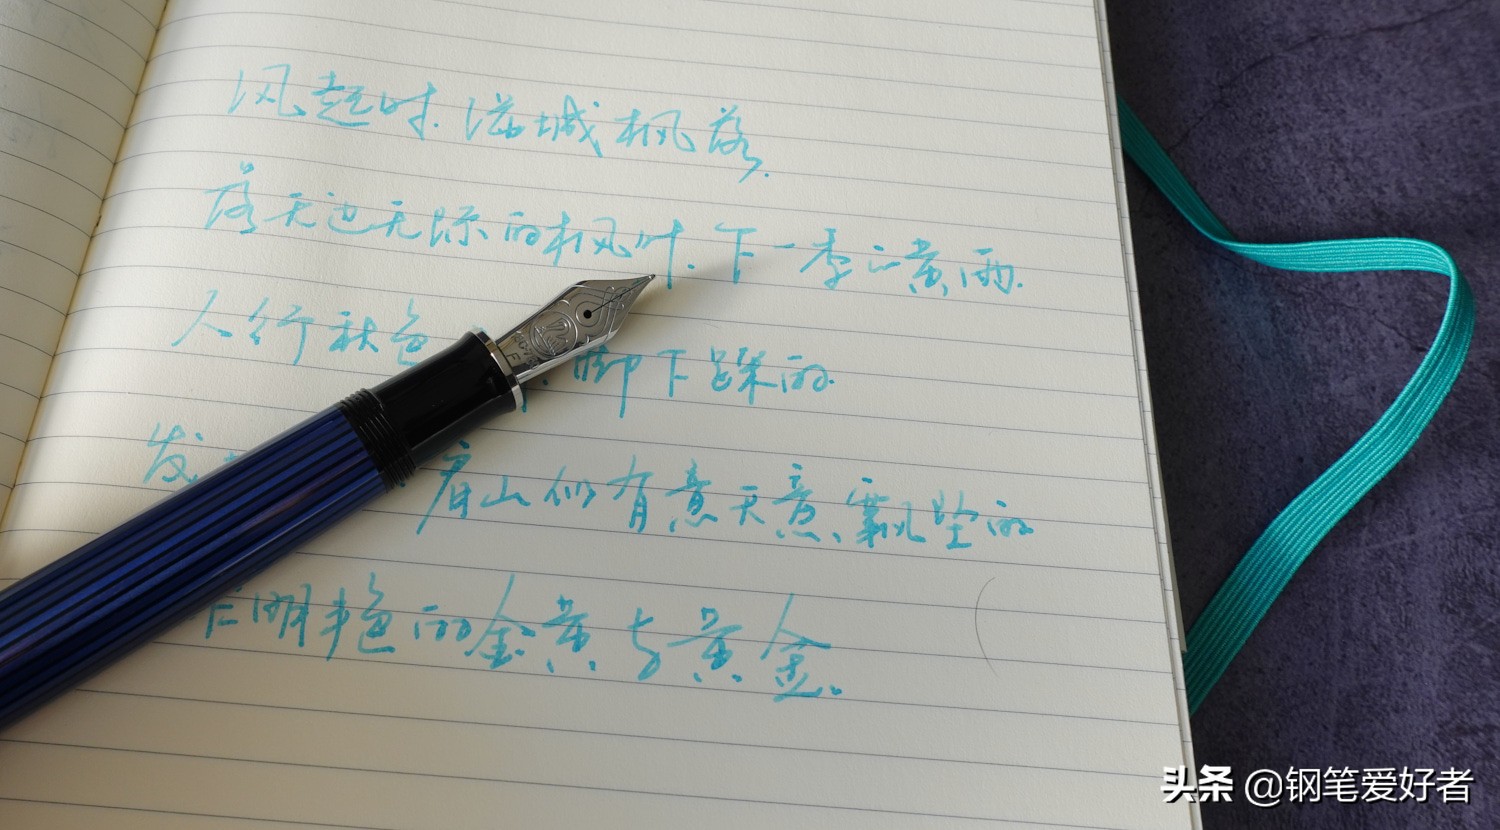 风起时.满城枫落.
落无边无际的枫叶.下一季的黄雨.
人行秋色 脚下踩的
发 眉山 似有意无意、飘坠的
片明艳的金黄与黄金。
F
头条 @钢笔爱好者